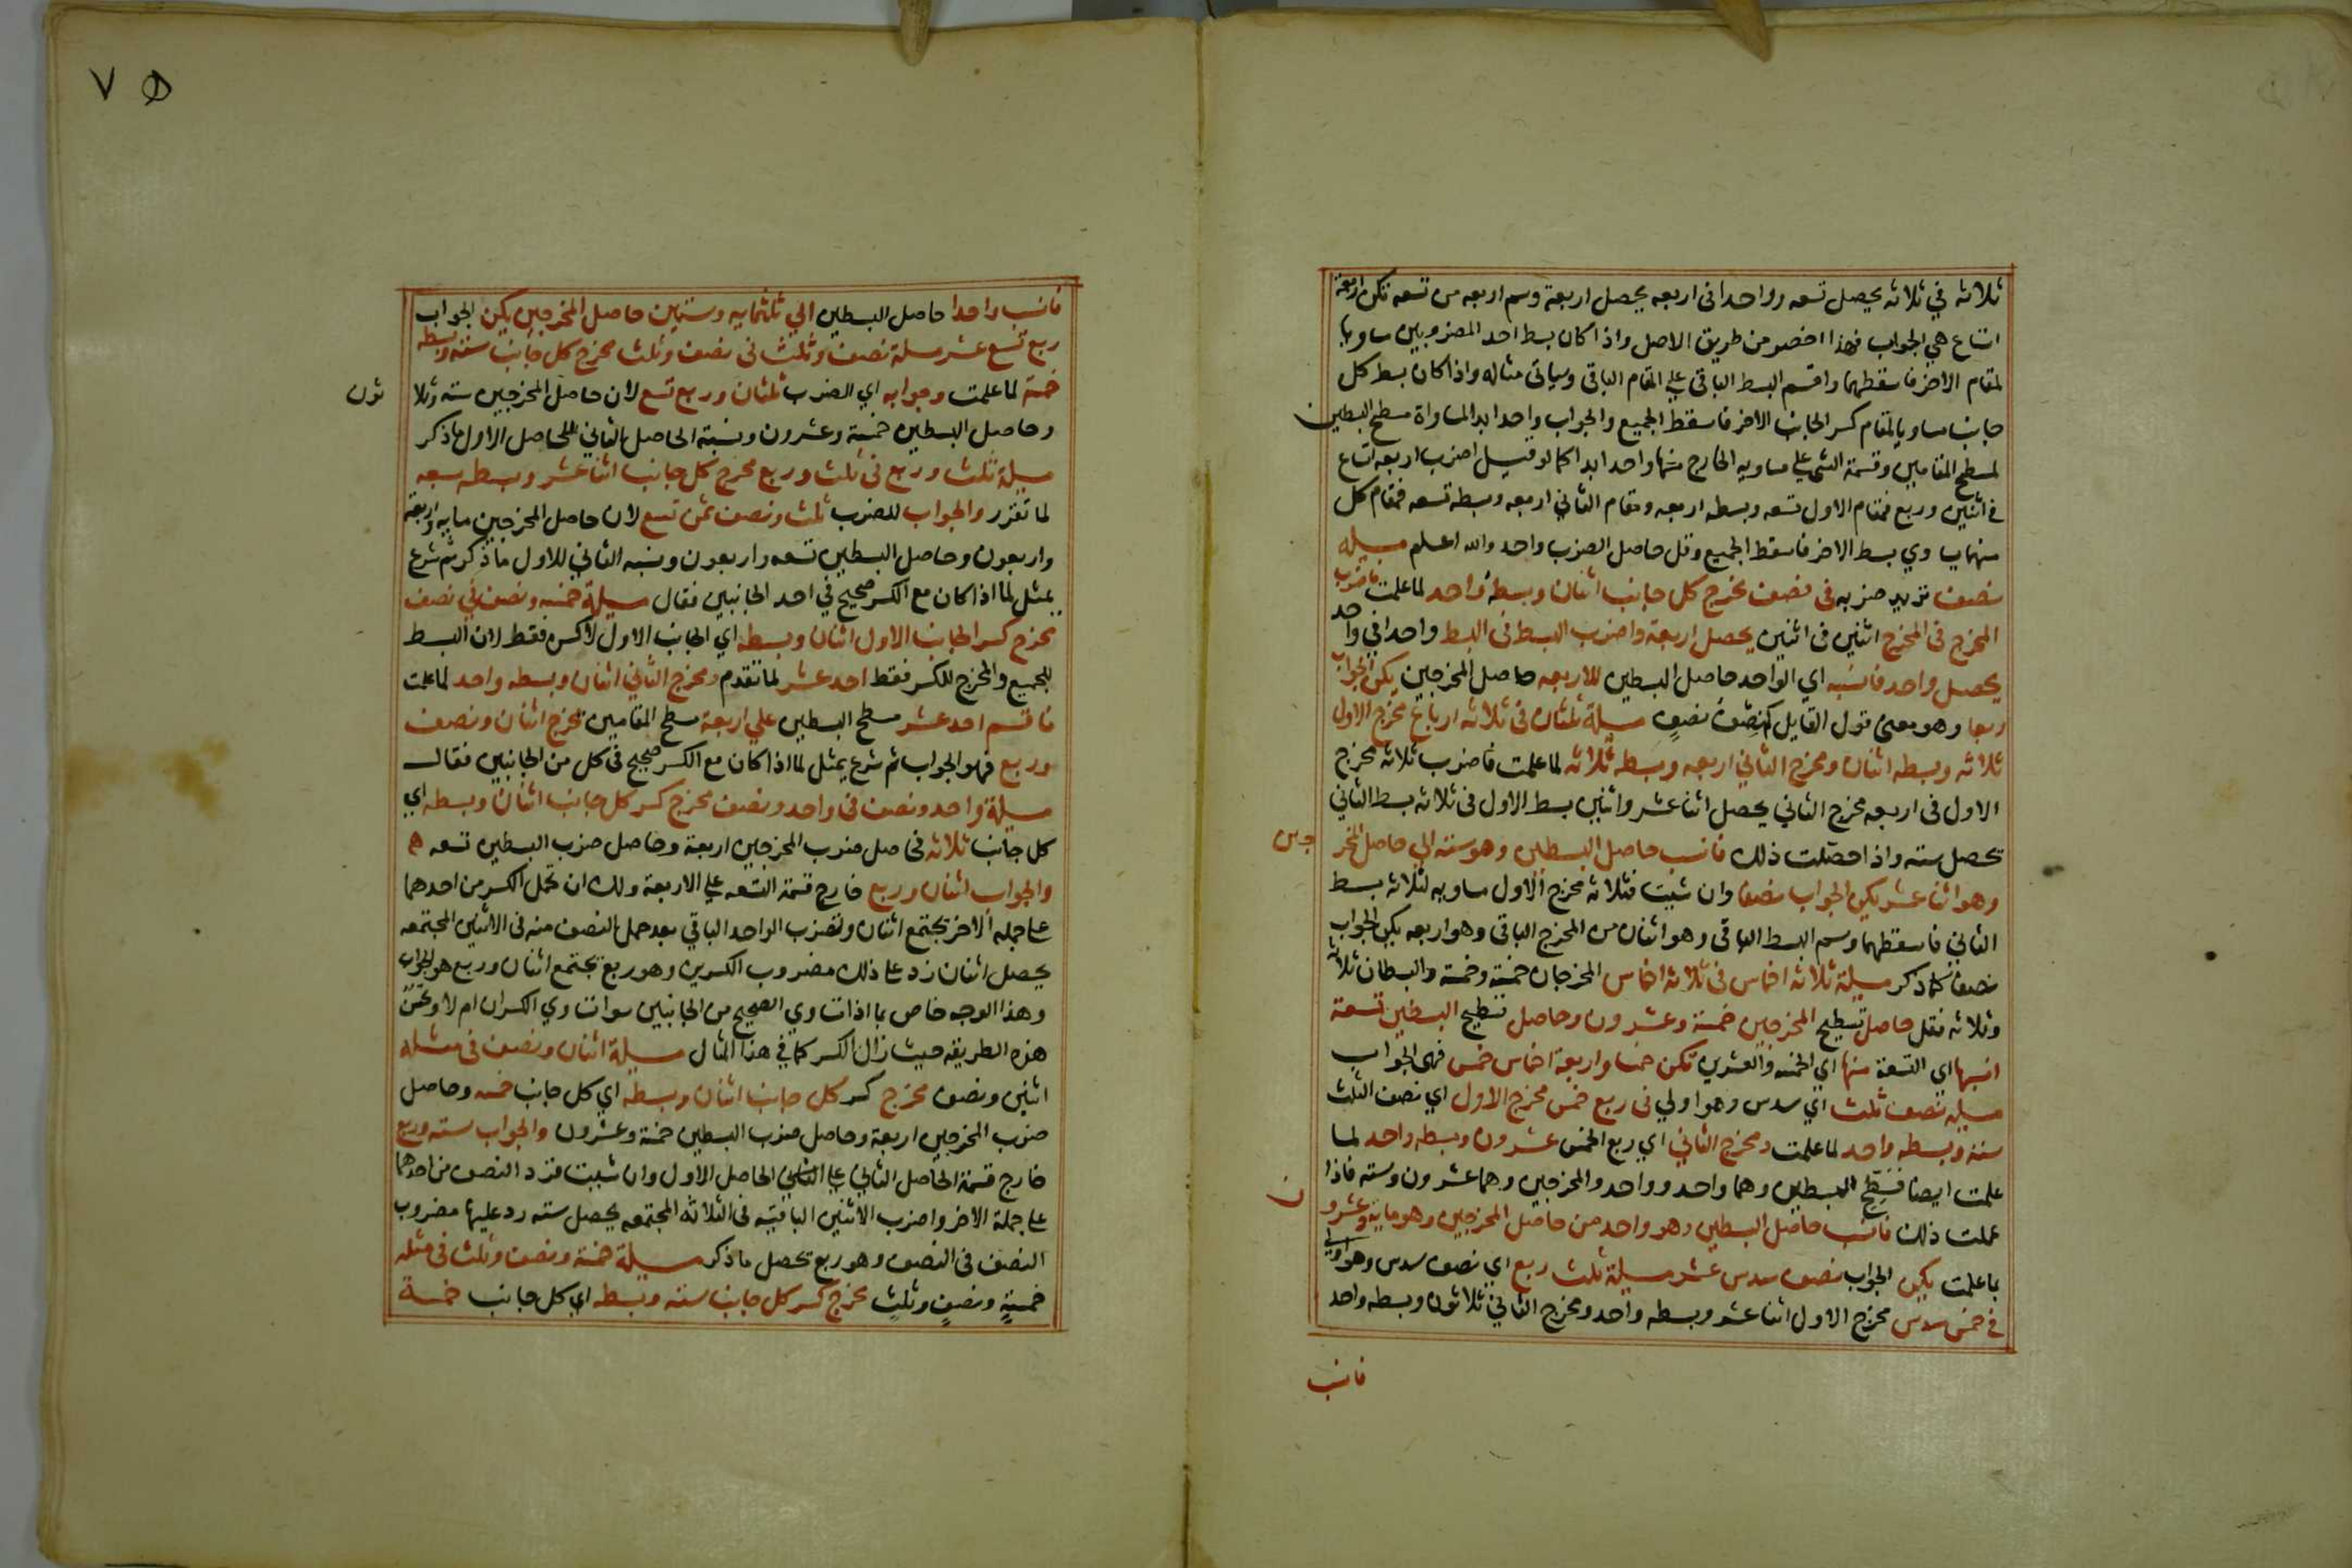 ثلاثه في ثلاثه يحصل تسعه وواحدا فى اربعه يحصل اربعة وسم اربعه من تسعه تكن اربعة
اتساع هي الجواب فهذا اخصر من طريق الاصل واذا كان بسط احد المضروبين مساويا
لمقام الاخر فاسقطهما واقسم البسط الباقى على المقام الباقى وسياتى مثاله واذا كان بسط كل
جانب مساويا لمقام كسر الجانب الاخر فاسقط الجميع والجواب واحد ابدا لمساواة مسطح البسطين
لمسطح المقامين وقسمة الشى على مساويه الخارج منها واحد ابدا كما لو قيل اضرب اربعه اتساع
في اثنين وربع فمقام الاول تسعه وبسطه اربعه ومقام الثاني اربعه وبسطه تسعه فمقام كل
منهما يساوي بسط الاخر فاسقط الجميع وقل حاصل الضرب واحد والله اعلم مسيلة
نصف تريد ضربه فى نصف مخرج كل جانب اثنان وبسطه واحد لما علمت فاضرب
المخرج فى المخرج اثنين فى اثنين يحصل اربعة واضرب البسط فى البسط واحدا في واحد
يحصل واحد فانسبه اي الواحد حاصل البسطين للاربعه حاصل المخرجين يكن الجواب
ربعا وهو بمعنى قول القايل كم نصف نصف مسيلة ثلثان فى ثلاثه ارباع مخرج الاول
ثلاثه وبسطه اثنان ومخرج الثاني اربعه وبسطه ثلاثه لما علمت فاضرب ثلاثه مخرج
الاول فى اربعه مخرج الثاني يحصل اثنا عشر واثنين بسط الاول فى ثلاثه بسط الثاني
تحصل سته واذا حصلت ذلك فانسب حاصل البسطين وهو سته الى حاصل المخر
جين
وهو اثنا عشر يكن الجواب نصفا وان شيت فثلاثه مخرج الاول مساويه لثلاثه بسط
الثاني فاسقطهما وسم البسط الباقى وهو اثنان من المخرج الباقى وهو اربعه يكن الجواب
نصفا كما ذكر مسيلة ثلاثه اخماس فى ثلاثه اخماس المخرجان خمسة وخمسة والبسطان ثلاثه
وثلاثه فقل حاصل تسطيح المخرجين خمسة وعشرون وحاصل تسطيح البسطين تسعة
انسبها اي التسعة منها اي الخمسه والعشرين تكن خمسا واربعة اخماس خمس فهى الجواب
مسيله نصف ثلث اي سدس وهو اولي فى ربع خمس مخرج الاول اي نصف الثلث
سته وبسطه واحد لما علمت ومخرج الثاني اي ربع الخمس عشرون وبسطه واحد لما
علمت ايضا فسطح البسطين وهما واحد وواحد والمخرجين وهما عشرون وسته فاذا
عملت ذلك فانسب حاصل البسطين وهو واحد من حاصل المخرجين وهو مايه وعشرو
ن
بما علمت يكن الجواب نصف سدس عشر مسيلة ثلث ربع اي نصف سدس وهو اولي
في خمس سدس مخرج الاول اثنا عشر وبسطه واحد ومخرج الثاني ثلاثون وبسطه واحد
فانسب
٧٥
فانسب واحدا حاصل البسطين الي ثلثمايه وستين حاصل المخرجين يكن الجواب
ربع تسع عشر مسلة نصف وثلث فى نصف وثلث مخرج كل جانب سته وبسطه
خمسة لما علمت وجوابه اي الضرب ثلثان وربع تسع لان حاصل المخرجين سته وثلا
ثون
وحاصل البسطين خمسة وعشرون ونسبة الحاصل الثاني للحاصل الاول ما ذكر
مسيلة ثلث وربع فى ثلث وربع مخرج كل جانب اثنا عشر وبسطه سبعه
لما تقرر والجواب للضرب ثلث ونصف ثمن تسع لان حاصل المخرجين مايه واربعة
واربعون وحاصل البسطين تسعه واربعون ونسبه الثاني للاول ما ذكر ثم شرع
يمثل لما اذا كان مع الكسر صحيح في احد الجانبين فقال مسيلة خمسه ونصف في نصف
مخرج كسر الجانب الاول اثنان وبسطه اي الجانب الاول لا كسره فقط لان البسط
للجميع والمخرج للكسر فقط احد عشر لما تقدم ومخرج الثاني اثنان وبسطه واحد لما علمت
فاقسم احد عشر مسطح البسطين علي اربعة مسطح المقامين يخرج اثنان ونصف
وربع فهو الجواب ثم شرع يمثل لما اذا كان مع الكسر صحيح فى كل من الجانبين فقال
مسيلة واحد ونصف فى واحد ونصف مخرج كسر كل جانب اثنان وبسطه اي
كل جانب ثلاثه فحاصل ضرب المخرجين اربعة وحاصل ضرب البسطين تسعه
والجواب اثنان وربع خارج قسمة التسعه على الاربعة ولك ان تحمل الكسر من احدهما
على جملة الاخر يجتمع اثنان وتضرب الواحد الباقي بعد حمل النصف منه فى الاثنين المجتمعه
يحصل اثنان زد على ذلك مضروب الكسرين وهو ربع يجتمع اثنان وربع هو الجواب
وهذا الوجه خاص بما اذا تساوي الصحيح من الجانبين سوا تساوي الكسران ام لا وتحسن
هذه الطريقه حيث زال الكسر كما في هذا المثال مسيلة اثنان ونصف فى مثله
اثنين ونصف مخرج كسر كل جانب اثنان وبسطه اي كل جانب خمسه وحاصل
ضرب المخرجين اربعة وحاصل ضرب البسطين خمسة وعشرون والجواب سته وربع
خارج قسمة الحاصل الثاني على الحاصل الاول وان شيت فزد النصف من احدهما
على جملة الاخر واضرب الاثنين الباقية فى الثلاثه المجتمعه يحصل سته زد عليها مضروب
النصف فى النصف وهو ربع تحصل ما ذكر مسيلة خمسة ونصف وثلث فى مثله
خمسةٍ ونصفٍ وثلثٍ مخرج كسر كل جانب سته وبسطه اي كل جانب خمسة